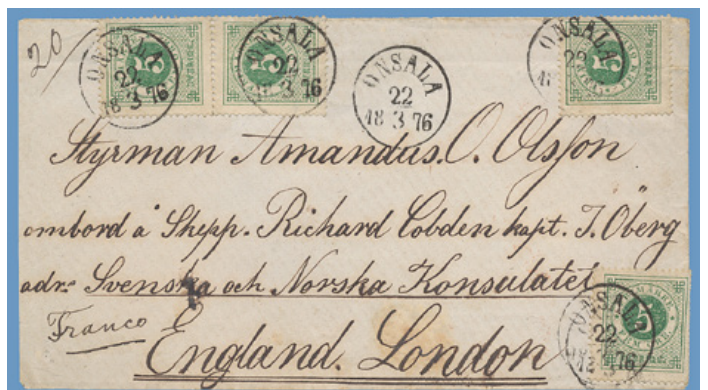 20
ONSALA
22
18 3 76
5
ONSALA
22
18 3 76
5
ONSALA
22
18 3 76
ONSALA
22
18
5
Styrman Amandus. O. Olsson
ombord å Skepp. Richard Cobden kapt. J. Öberg
adr: Svenska och Norska Konsulatet
Franco
England. London
ONSALA
22
18 3 76
5